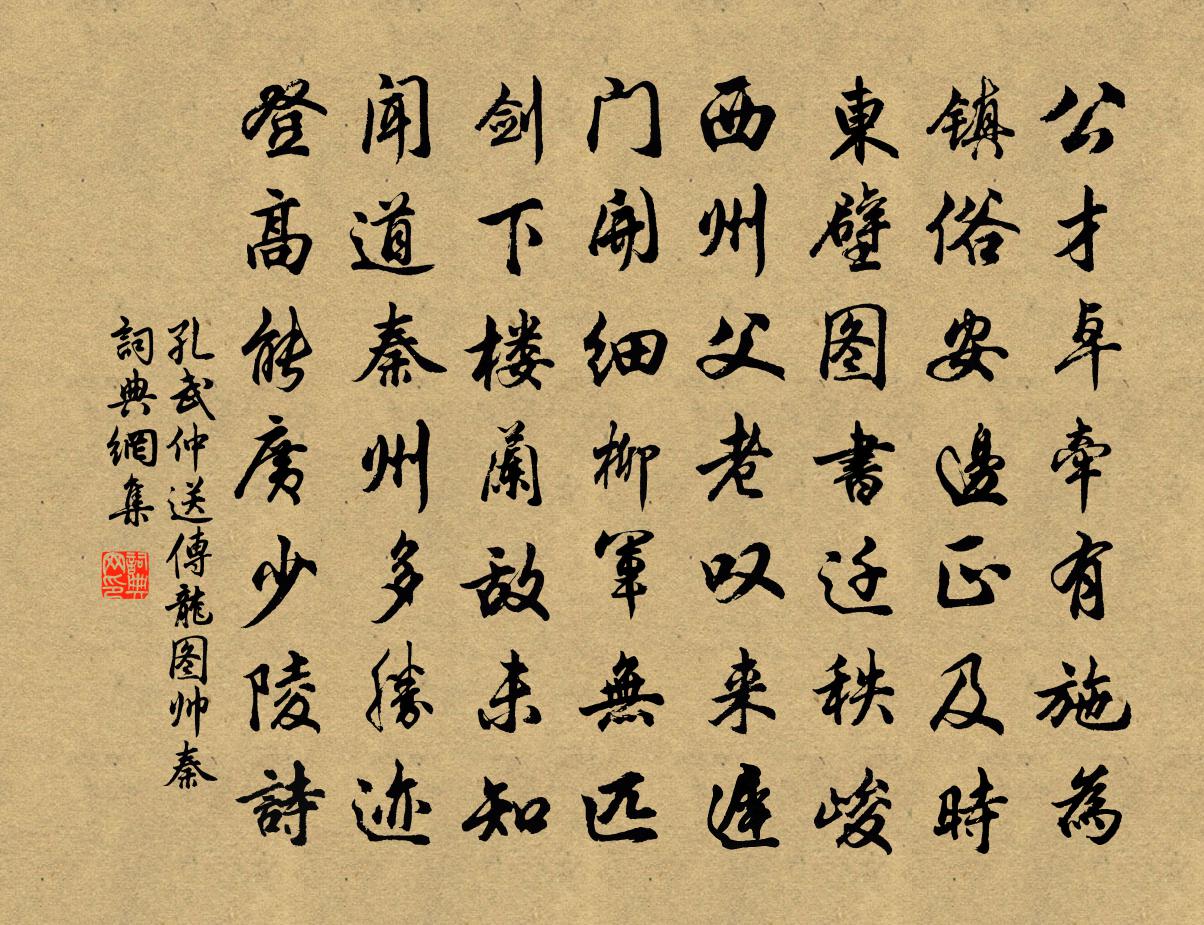 公才卓牵有施為
镇俗安邊正及時
東壁图書迁秩峻
西州父老叹来遲
门開细柳軍無匹
剑下楼蘭敌未知
闻道秦州多勝迹
登高能廣少陵詩
孔武仲送傅龍图帅秦
詞典網集
詞典网印